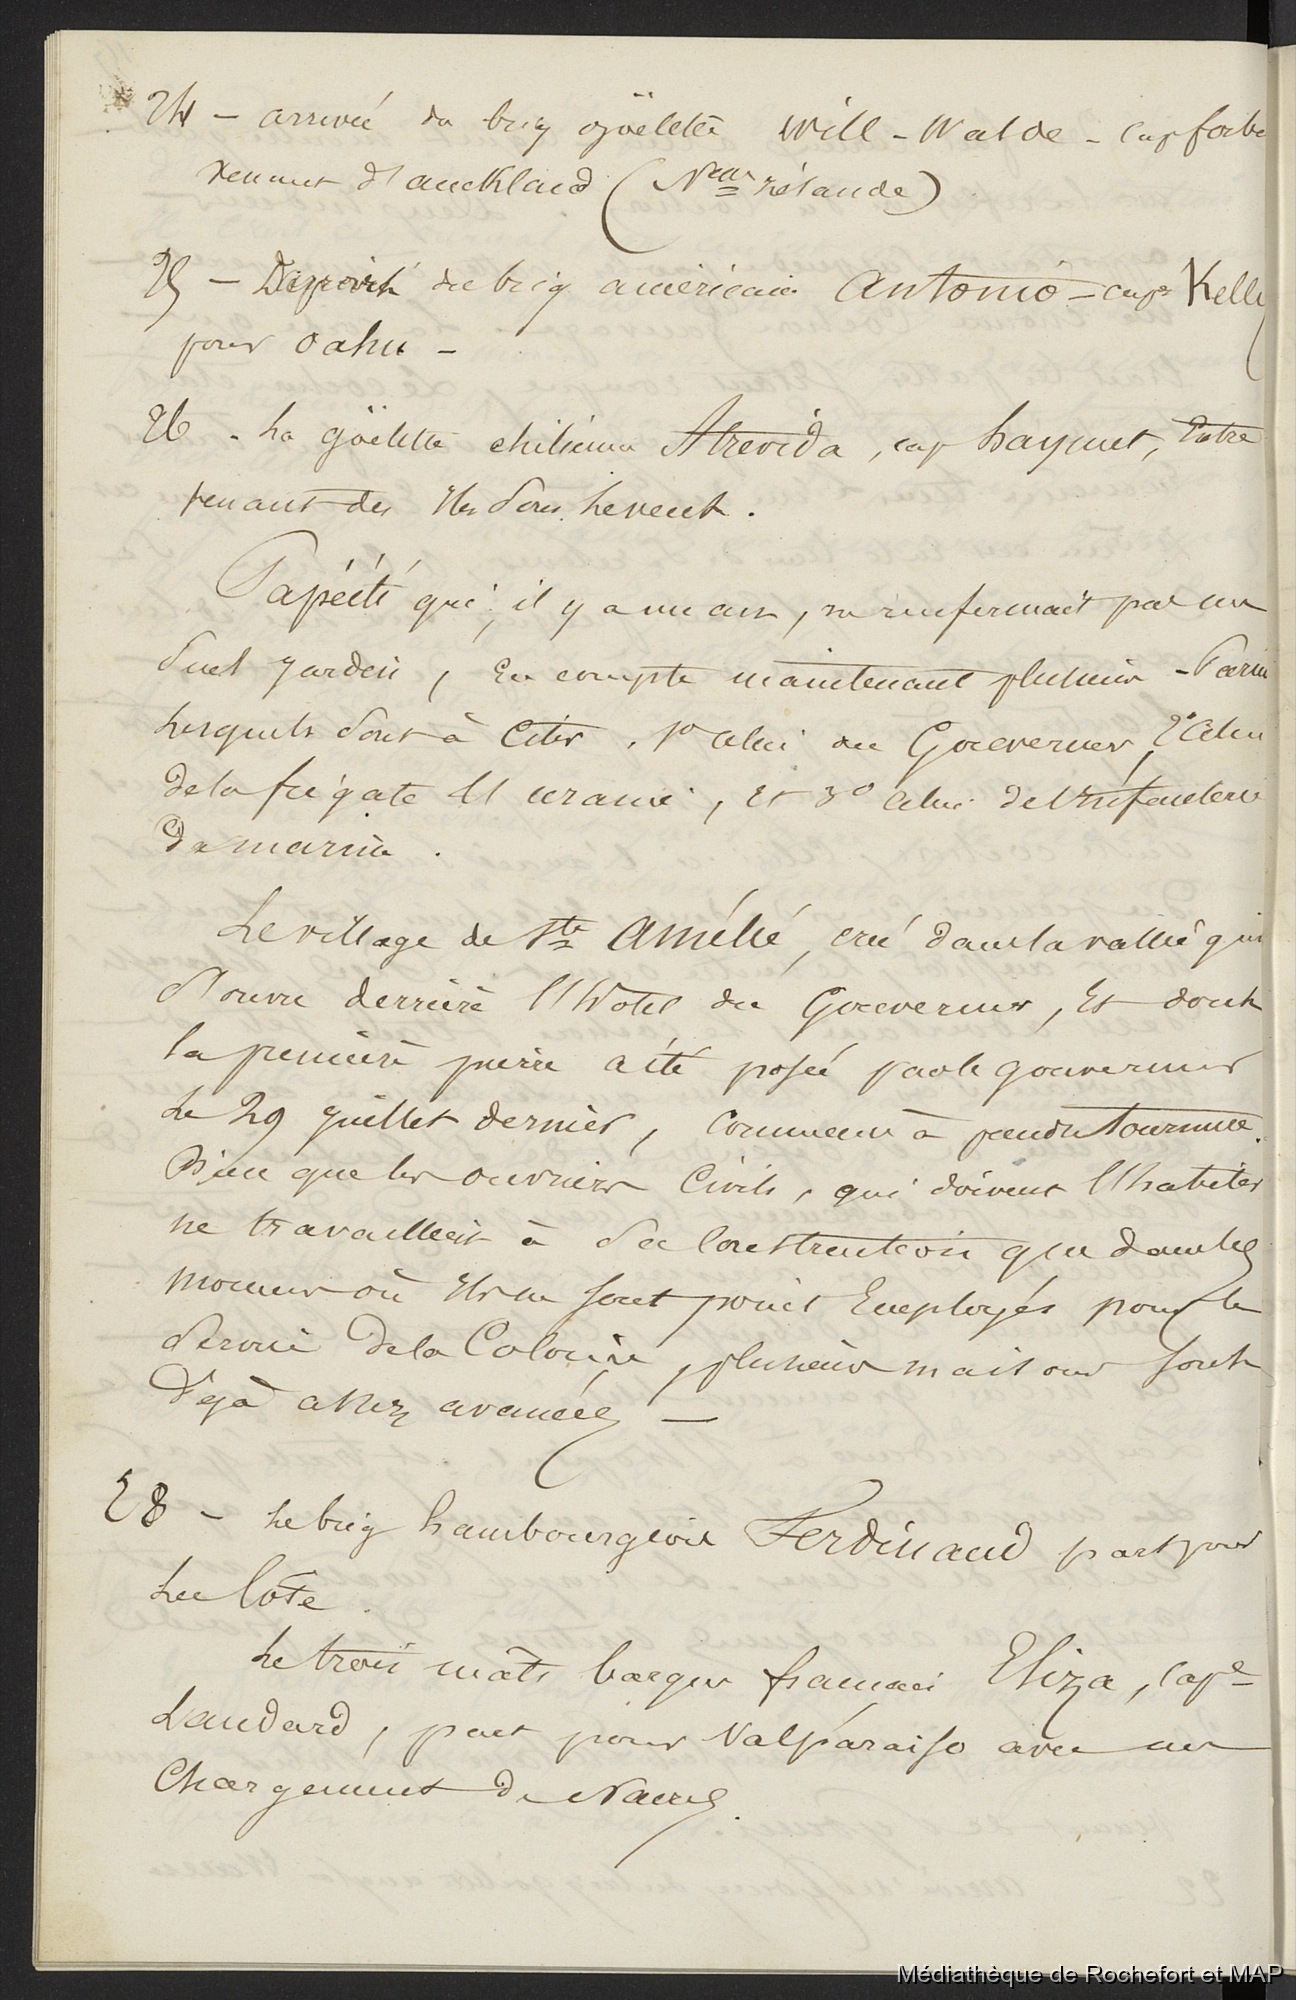 24 – arrivée du brig goëlette Will-Watde – cap forbe
venant d'auckland (N^elle zélande)
25 – Départ du brig américain Antonio – cap^e Kelly
pour Oahu –
26 – La goëlette chilienne Atrevida, cap haymet, Entre
venant des Iles Sous le vent.
Papéété qui, il y a un an, ne renfermait pas un
Seul jardin, En compte maintenant plusieurs –
Lesquels Sont à Citer, 1º Celui du Gouverneur, 2º Celui
de la frégate l'uranie, Et 3º Celui de l'infanterie
De marine.
Le village de S^te Amélie, créé dans la vallée qui
S'ouvre derrière l'Hotel du Gouverneur, Et dont
la première pierre a été posée par le gouverneur
Le 29 Juillet dernier, Commence à prendre tournure.
Bien que les ouvriers Civils, qui doivent l'habiter
ne travaillent à Sa Construction que dans les
moments où Ils ne Sont point Employés pour le
Service de la Colonie, plusieurs maisons Sont
Déjà assez avancées –
28 – Le brig hambourgeois Ferdinand part pour
La Côte.
Le trois mâts barque français Eliza, Cap^e
Landard, part pour Valparaiso avec un
Chargement de Nacres.
Médiathèque de Rochefort et MAP